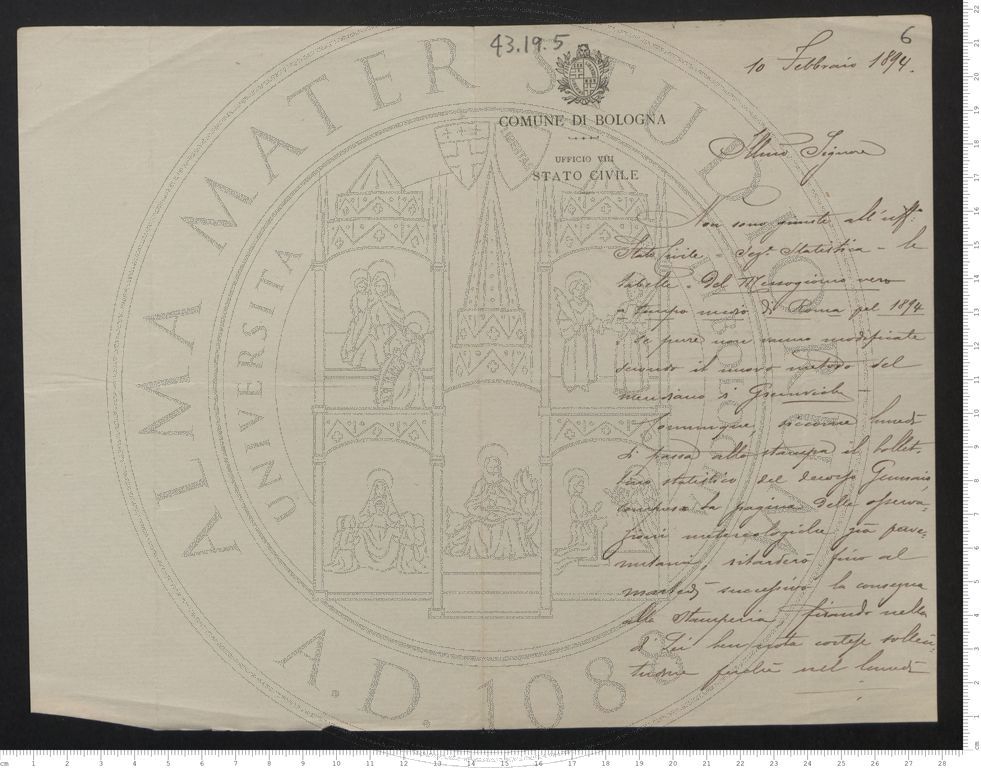 43.19.5
6
10 Febbraio 1894.
COMUNE DI BOLOGNA
UFFICIO VIII
STATO CIVILE
Illmo Signore
Non sono giunte all'uff.
Stato Civile - Statistica - le
tabelle - del Mezzogiorno vero
a tempo medio di Roma pel 1894
e se pure non vanno modificate
secondo il nuovo metodo del
meridiano di
Comunque, siccome lunedì
si passa alla stampa il bollet-
tino statistico del decorso Gennaio
compresa la pagina delle osserva-
zioni meteorologiche già perve-
nutami, ritarderò fino al
martedì successivo la consegna
alla Stamperia, fidando nella
di Lei ben nota cortese solleci-
tudine finchè nel lunedì
ALMA MATER STUDIORUM
UNIVERSITÀ DI BOLOGNA
LIBERTAS
A.D. 1088